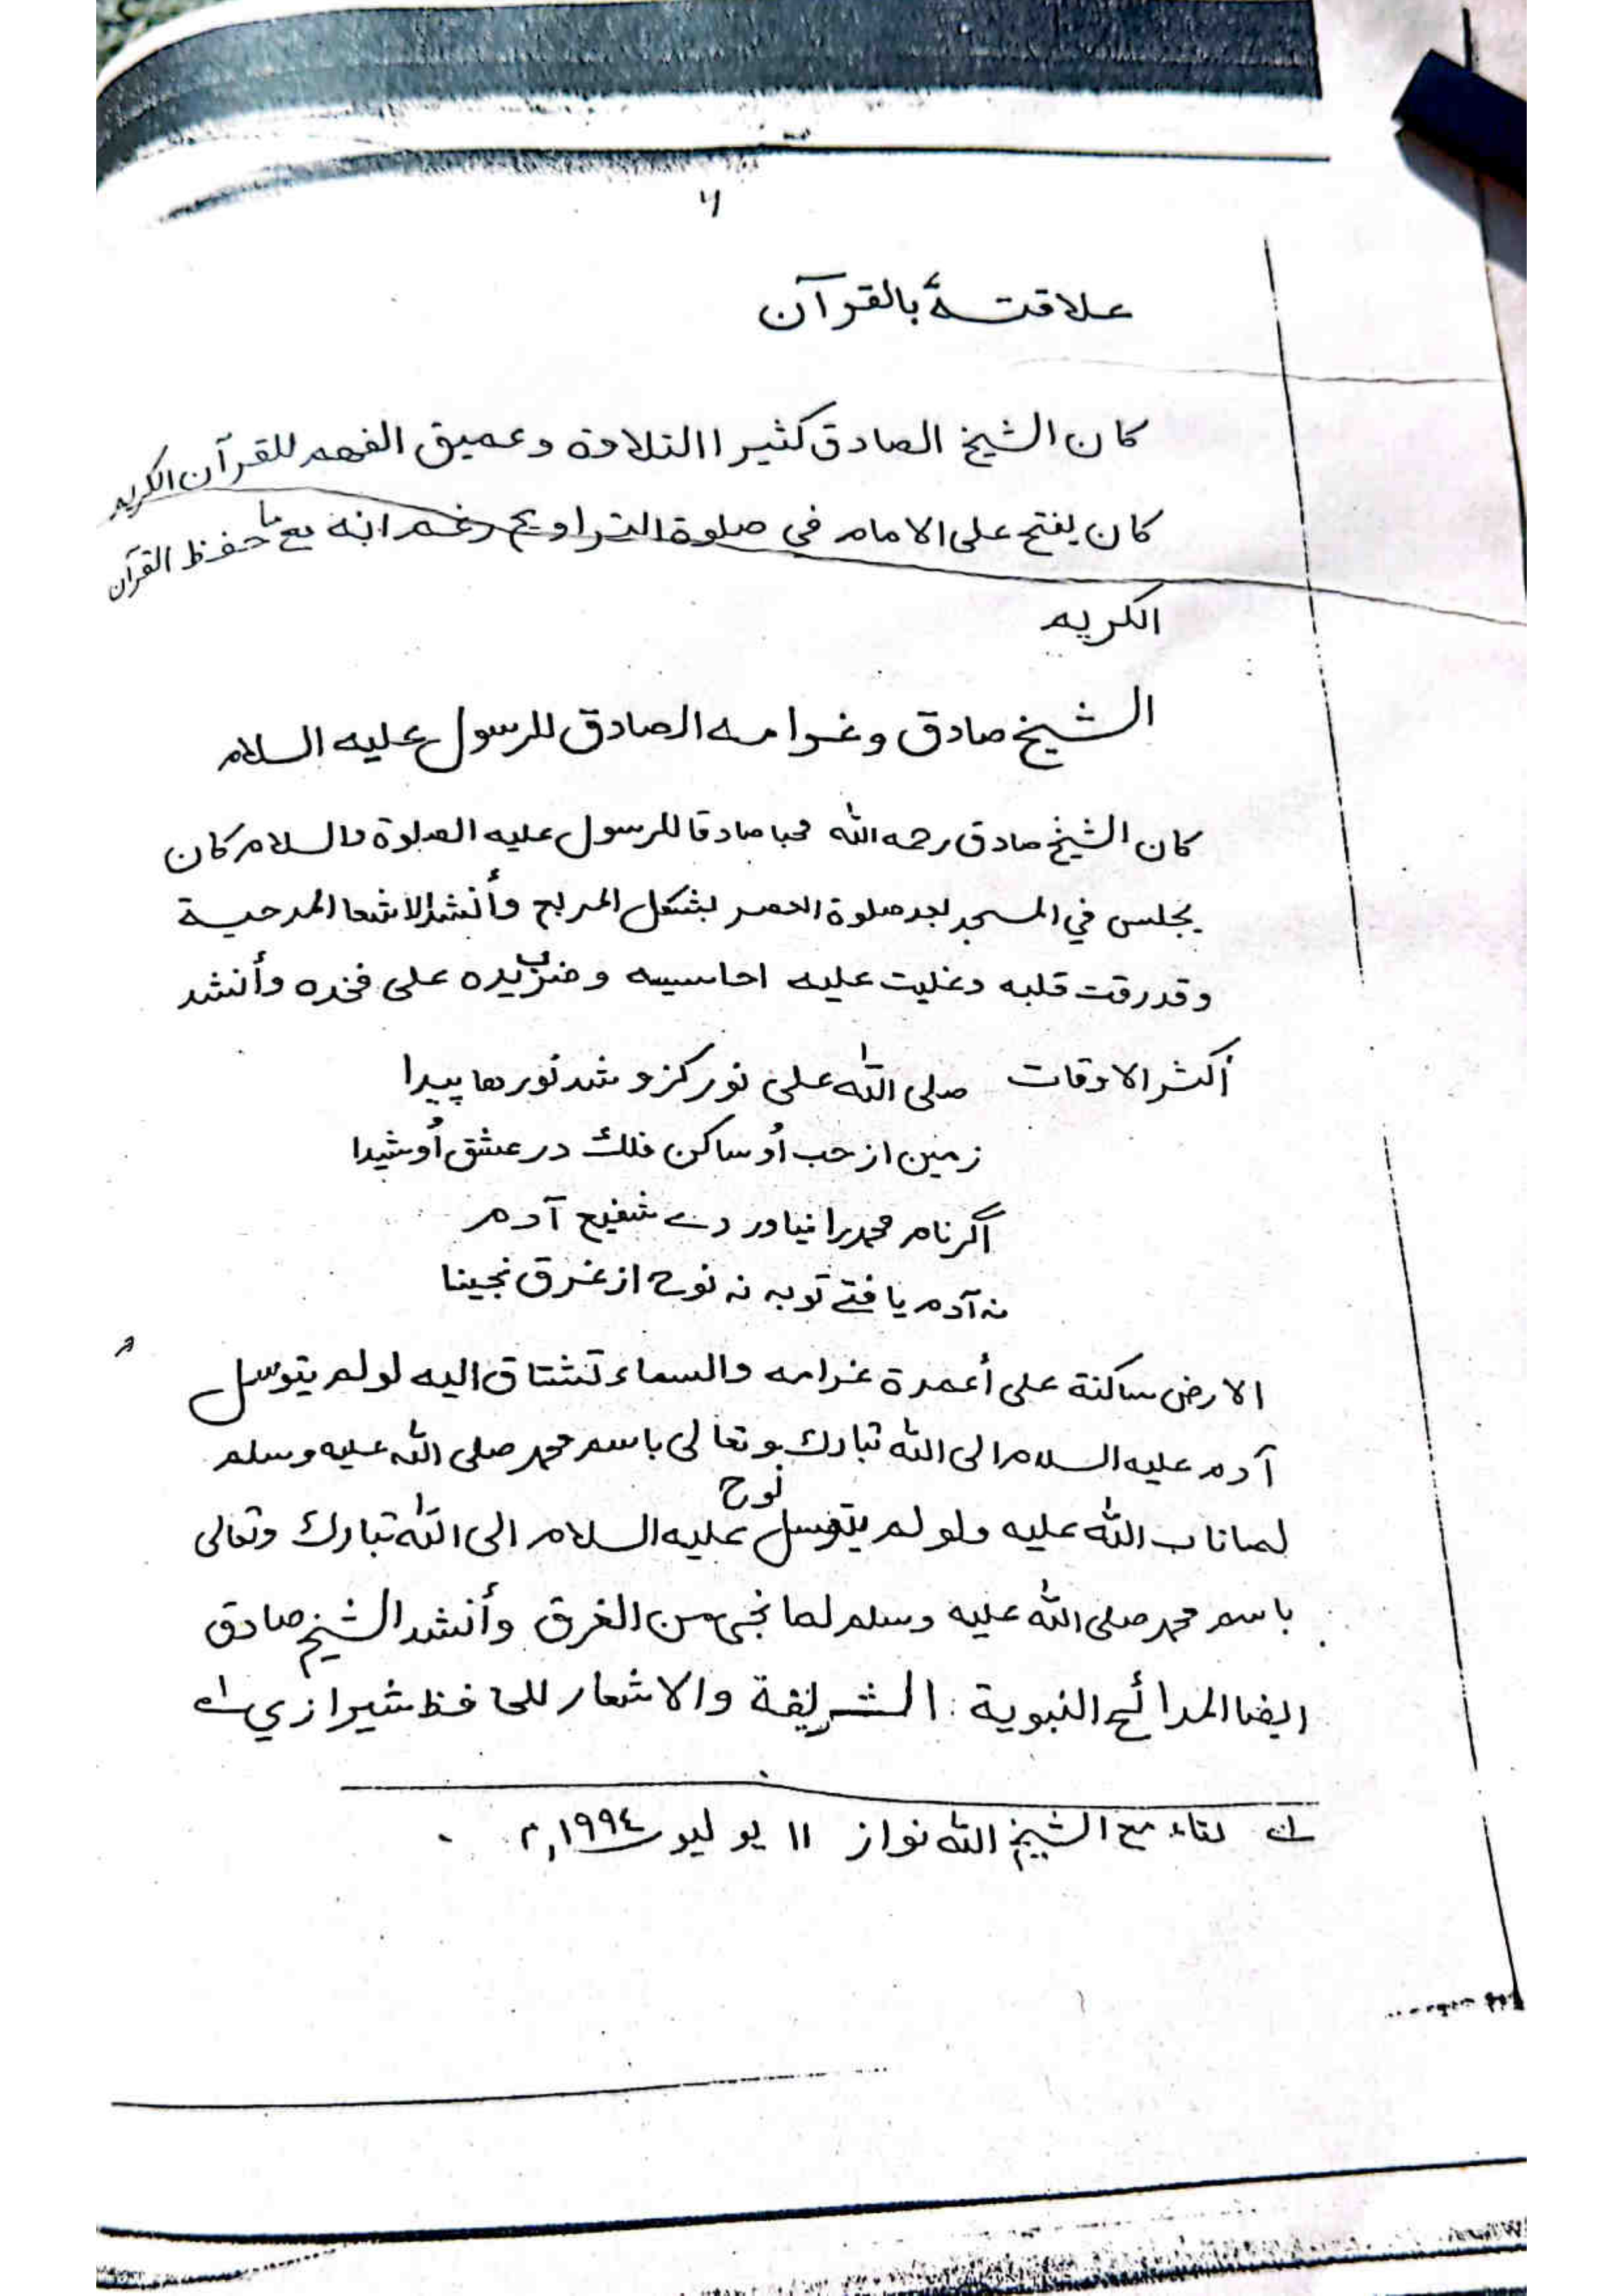 ۶
علاقتهٗ بالقرآن
كان الشيخ الصادق كثيرا التلاوة وعميق الفهم للقرآن الكريم
كان يفتح على الامام فى صلوة التراويح رغم انه ما حفظ القرآن
الكريم
الشيخ صادق وغرامه الصادق للرسول عليه السلام
كان الشيخ صادق رحمه الله محبا صادقا للرسول عليه الصلوة والسلام كان
يجلس في المسجد بعد صلوة العصر بشكل المربع وأنشد الاشعا المدحية
وقد رقت قلبه وغلبت عليه احاسيسه وضرب يده على فخده وأنشد
أكثر الاوقات صلى الله على نور كزو شد نورها پيدا
زمين از حب اُو ساكن فلك در عشق اُو شيدا
اگر نام محمد را نياوردے شفيع آدم
نه آدم يافتے توبه نه نوح از غرق نجينا
الارض ساكنة على أعمدة غرامه والسماء تشتاق اليه لو لم يتوسل
آدم عليه السلام الى الله تبارك وتعالى باسم محمد صلى الله عليه وسلم
لما تاب الله عليه ولو لم يتوسل نوح عليه السلام الى الله تبارك وتعالى
باسم محمد صلى الله عليه وسلم لما نجى من الغرق وأنشد الشيخ صادق
ايضا المدائح النبوية الشريفة والاشعار للحافظ شيرازي ؎۱
؎۱ لقاء مع الشيخ الله نواز ۱۱ يوليو ۱۹۹٤م